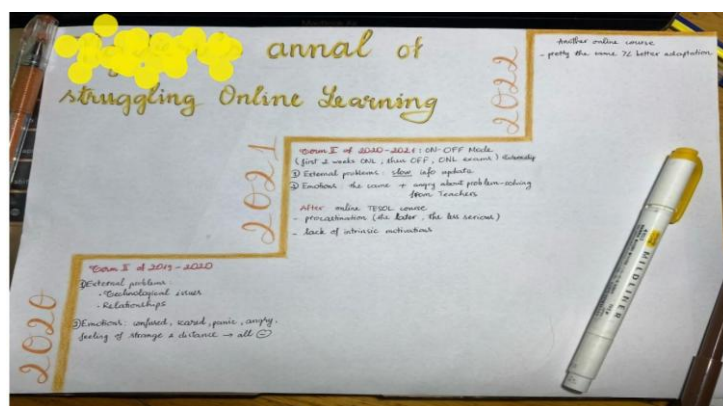 annal of
struggling Online Learning
2022
Another online course
- pretty the same
better adaptation
2021
Term II of 2020-2021: ON-OFF Mode
(first 2 weeks ONL, then OFF, ONL exams)
① External problems: slow info update
② Emotions: the same + angry about problem-solving
from Teachers
After online TESOL course
- procrastination (the later, the less serious)
- lack of intrinsic motivations
2020
Term II of 2019-2020
① External problems:
- Technological issues
- Relationships
② Emotions: confused, scared, panic, angry,
feeling of strange & distance → all ⊖
MILDLINER